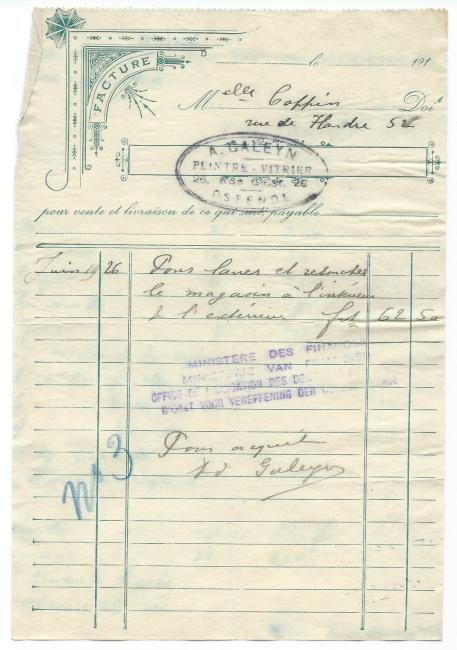 FACTURE
le 191
Melle Coppin Doit
rue de Flandre 52
A. GALEYN
PEINTRE - VITRIER
26, 26
OSTENDE
pour vente et livraison de ce qui suit, payable
Juin 19 26 Pour laver et retoucher
le magasin à l'intérieur
& l'extérieur frs 62 50
MINISTERE DES FINANCES
MINISTERIE VAN FINANCIEN
OFFICE DE LIQUIDATION DES
DIENST VOOR VEREFFENING DER
Pour acquit
Ad Galeyn
No 3